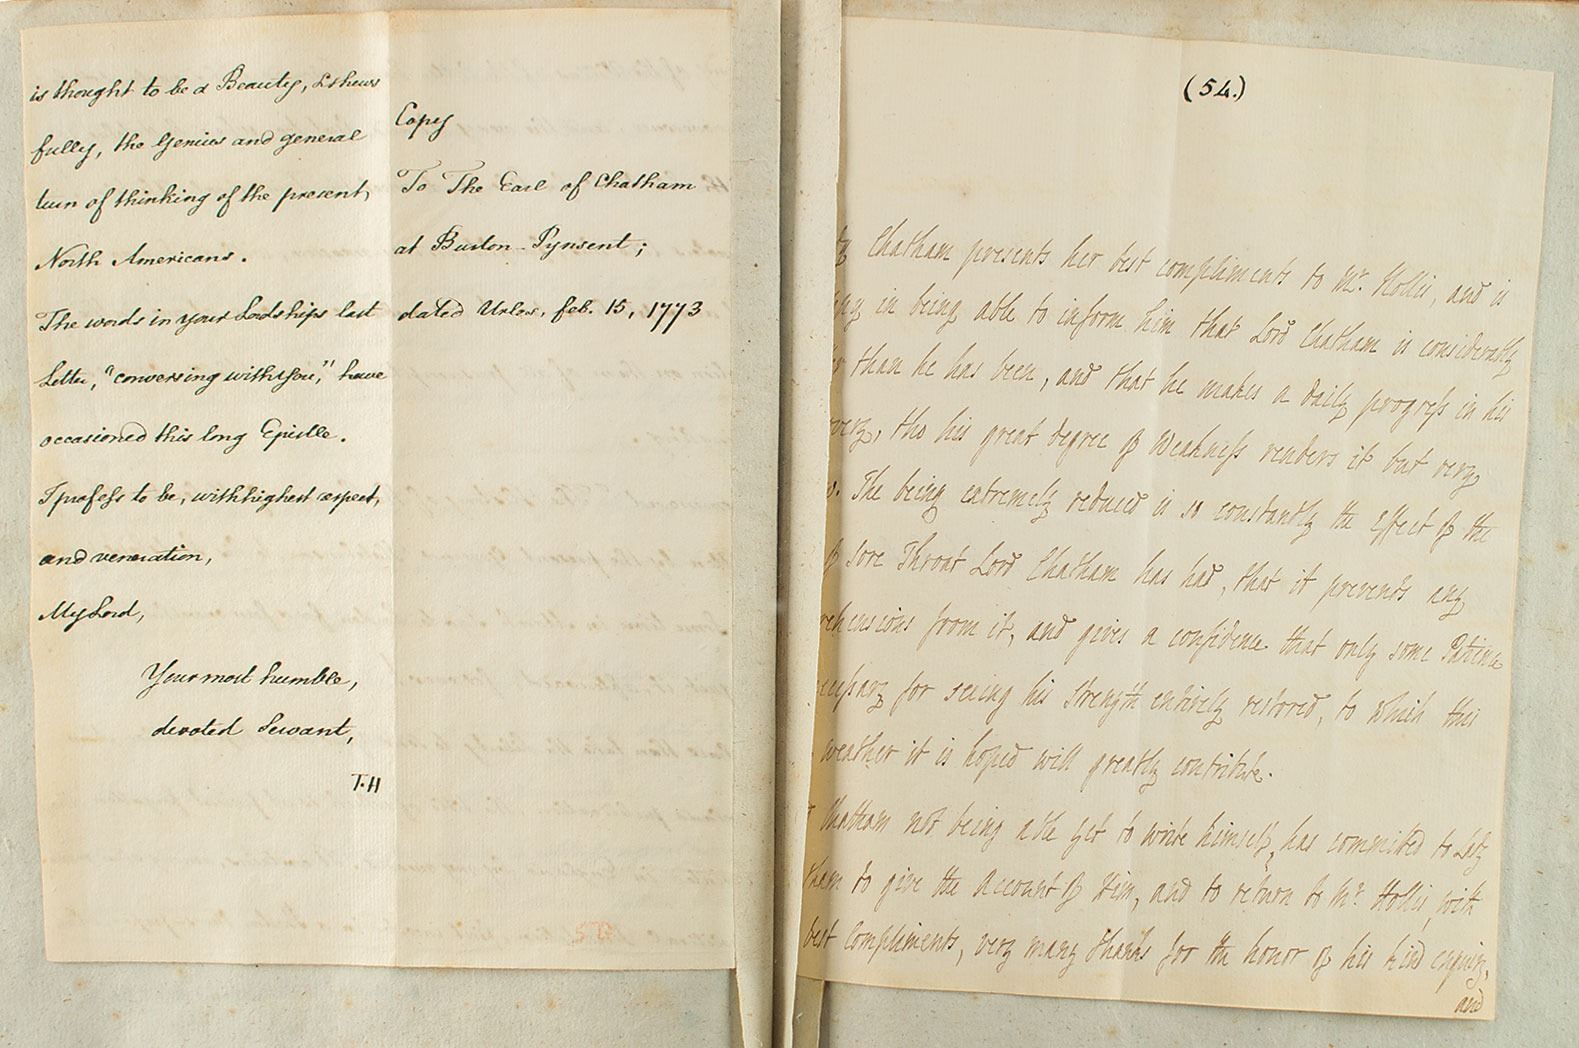 is thought to be a Beauty, & shews
fully, the Genius and general
turn of thinking of the present,
North Americans.
The words in your Lordships last
Letter, "conversing with you," have
occasioned this long Epistle.
I profess to be, with highest respect,
and veneration,
My Lord,
Your most humble,
devoted Servant,
T.H
Copy
To The Earl of Chatham
at Burton-Pynsent;
dated Urles, feb. 15, 1773
(54.)
Chatham presents her best compliments to Mr. Hollis, and is
in being able to inform him that Lord Chatham is considerably
than he has been, and that he makes a Daily progress in his
tho his great degree of Weakness renders it but very
The being extremely reduced is so constantly the Effect of the
sore Throat Lord Chatham has had, that it prevents any
from it, and gives a confidence that only some Patience
for seeing his Strength entirely restored, to which this
weather it is hoped will greatly contribute.
Chatham not being able yet to write himself, has committed to Lady
to give the Account of Him, and to return to Mr. Hollis, with
best Compliments, very many thanks for the honor of his kind enquiry,
and